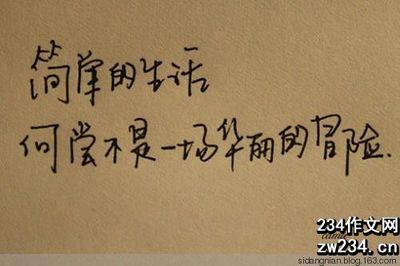 简单的生活
何尝不是一场华丽的冒险.
234作文网
zw234.cn
sidangnian.blog.163.com